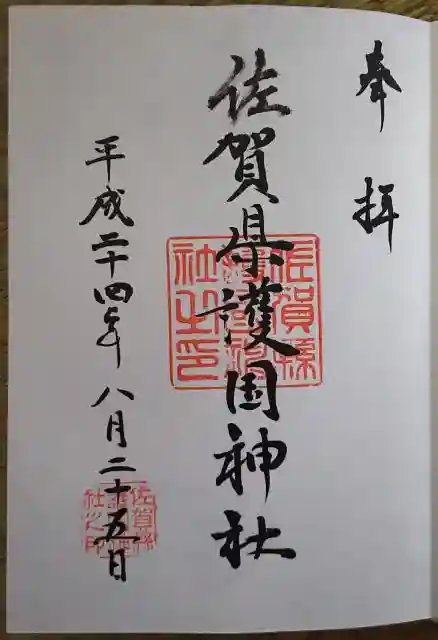 奉拝
佐賀県護国神社
平成二十四年八月二十五日
佐賀縣
護國神
社之印
佐賀縣
護國神
社之印